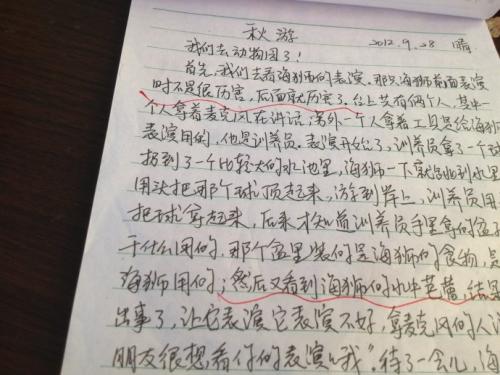 秋游
2012.9.28 晴
我们去动物园了!
首先,我们去看海狮的表演。那只海狮前面表演
时不是很厉害,后面就厉害了。台上共有俩个人,其中一
个人拿着麦克风在讲话;另外一个人拿着工具是给海狮
表演用的,他是训养员。表演开始了,训养员拿了一个球
扔到了一个比较大的水池里,海狮一下就跳到水里
用头把那个球顶起来,游到岸上,训养员用
把球拿起来,后来才知道训养员手里拿的盆子
干什么用的,那个盆里装的是海狮的食物,是
海狮用的;然后又看到海狮的水中芭蕾,结果
出事了,让它表演它表演不好,拿麦克风的人说
朋友很想看你的表演。我”。待了一会儿,海